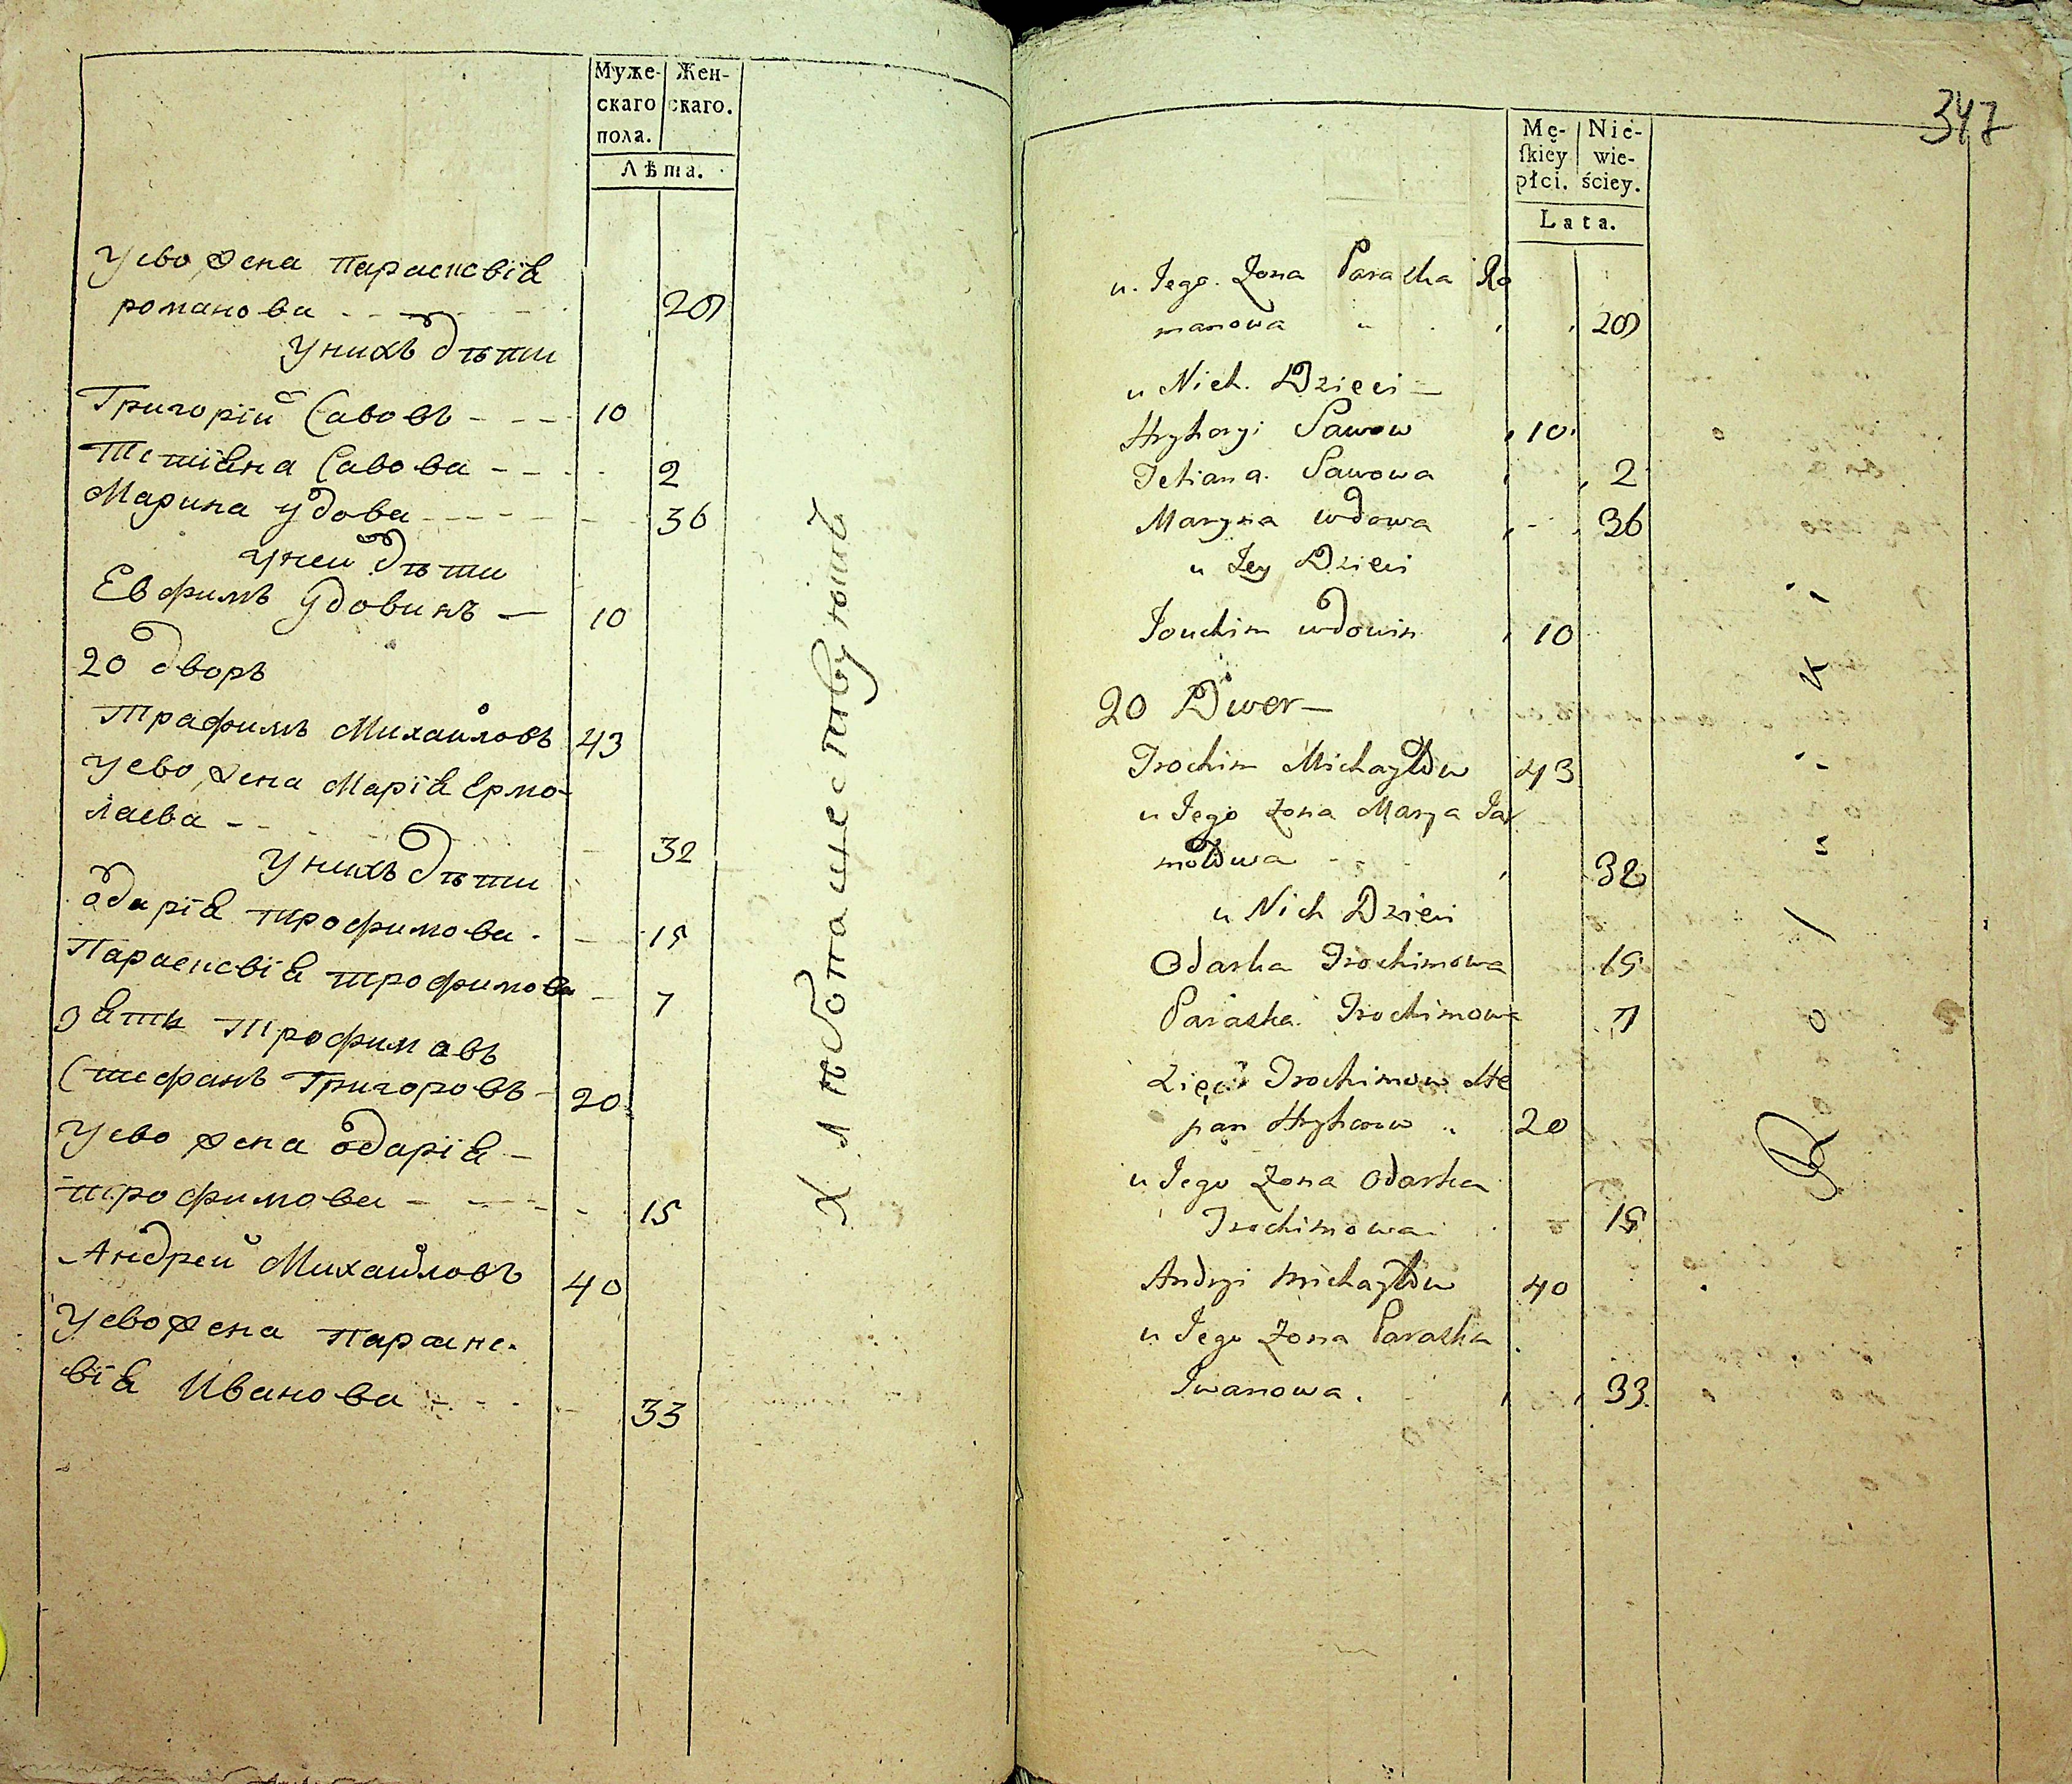 Муже-
скаго
пола.
Жен-
скаго.
Лѣта.
Уево жена Параскевія
романова - - - 29
Унихъ дѣти
Григорій Савовъ - - - 10
Тетіяна Савова - - - 2
Марина удова - - - 36
Уней дѣти
Евфимъ Удовинъ — 10
20 дворъ
Трафимъ Михайловъ 43
Уево жена Марія Ермо-
лаева - - - 32
Унихъ дѣти
Одарія трофимова - 15
Параскевія трофимова - 7
зять Трофимовъ
Стефанъ Григоровъ - 20
Уево жена Одарія -
трофимова - - - 15
Андрей Михайловъ 40
Уево жена Параске-
вія Иванова - - - 33
Хлѣбопашествуютъ
347
Mę-
ſkiey
płci.
Nie-
wie-
ściey.
Lata.
u. Jego. Zona Paraska Ro
manowa 29
u Nich. Dzieci —
Hryhoryi Sawow 10
Tetiana. Sawowa 2
Maryna wdowa 36
u Jey Dzieci
Jouchim wdowin 10
20 Dwor —
Trochim Michayłow 43
u Jego Zona Marya Jar
mołowa 32
u Nich Dzieci
Odarka Trochimowa 15
Paraska. Trochimowa 7
Zięć Trochimow Ste
pan Hryhorow 20
u Jego Zona Odarka
Trochimowa 15
Andryi Michayłow 40
u Jego Zona Paraska
Iwanowa. 33